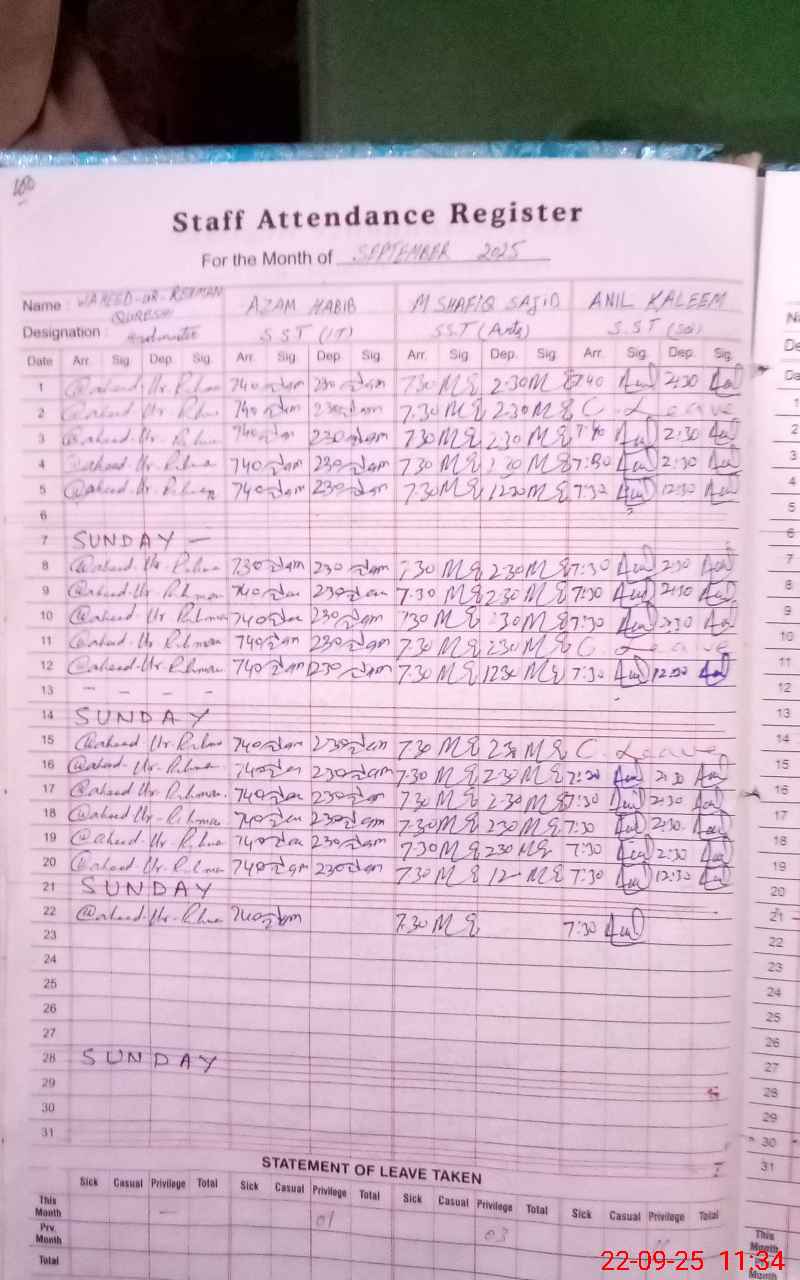 100
Staff Attendance Register
For the Month of SEPTEMBER 2025
Name : WAHEED-UR-REHMAN QURESHI AZAM HABIB M SHAFIQ SAJID ANIL KALEEM
Designation : Headmaster SST (IT) SST (Arts) S.ST (Sci)
Date Arr. Sig. Dep. Sig. Arr. Sig. Dep. Sig. Arr. Sig. Dep. Sig. Arr. Sig. Dep. Sig.
1 Waheed-Ur-Rehman 740 230 7.30 2.30 7:40 2:30
2 Waheed-Ur-Rehman 740 230 7.30 2.30 C. Leave
3 Waheed-Ur-Rehman 740 230 7.30 2.30 7:40 2:30
4 Waheed-Ur-Rehman 740 230 7.30 2.30 7:30 2:30
5 Waheed-Ur-Rehman 740 230 7.30 1230 7:30 12:30
6
7 SUNDAY —
8 Waheed-Ur-Rehman 730 230 7.30 2.30 7:30 2:30
9 Waheed-Ur-Rehman 740 230 7.30 2.30 7:30 2:30
10 Waheed-Ur-Rehman 740 230 7.30 2.30 7:30 2:30
11 Waheed-Ur-Rehman 740 230 7.30 2.30 C. Leave
12 Waheed-Ur-Rehman 740 1230 7.30 1230 7:30 12:30
13 - - - -
14 SUNDAY
15 Waheed-Ur-Rehman 740 230 7.30 2.30 C. Leave
16 Waheed-Ur-Rehman 740 230 7.30 2.30 7:30 2:30
17 Waheed-Ur-Rehman 740 230 7.30 2.30 7:30 2:30
18 Waheed-Ur-Rehman 740 230 7.30 230 7:30 2:30
19 Waheed-Ur-Rehman 740 230 7.30 230 7:30 2:30
20 Waheed-Ur-Rehman 740 230 7.30 12 7:30 12:30
21 SUNDAY
22 Waheed-Ur-Rehman 740 7.30 7:30
23
24
25
26
27
28 SUNDAY
29
30
31
STATEMENT OF LEAVE TAKEN
Sick Casual Privilege Total Sick Casual Privilege Total Sick Casual Privilege Total Sick Casual Privilege Total
This Month — 01
Prv. Month 03
Total
Na
De
Da
1
2
3
4
5
6
7
8
9
10
11
12
13
14
15
16
17
18
19
20
21
22
23
24
25
26
27
28
29
30
31
This Month
Prv. Month
22-09-25 11:34